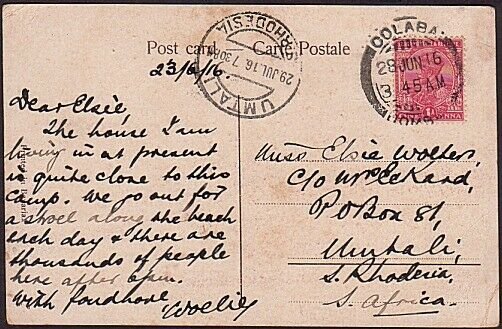 Post card
Carte Postale
UMTALI
29 JUL 16 7 30PM
RHODESIA
COLABA
29 JUN 16
3 45 AM
ANNA
23/6/16
Dear Elsie,
The house I am
living in at present
is quite close to this
camp. We go out for
a stroll along the beach
each day & there are
thousands of people
here after 6pm.
With fond love
Miss Elsie Wolters,
C/o Mrs Eckard,
P O Box 81,
Umtali,
S. Rhodesia,
S. Africa.